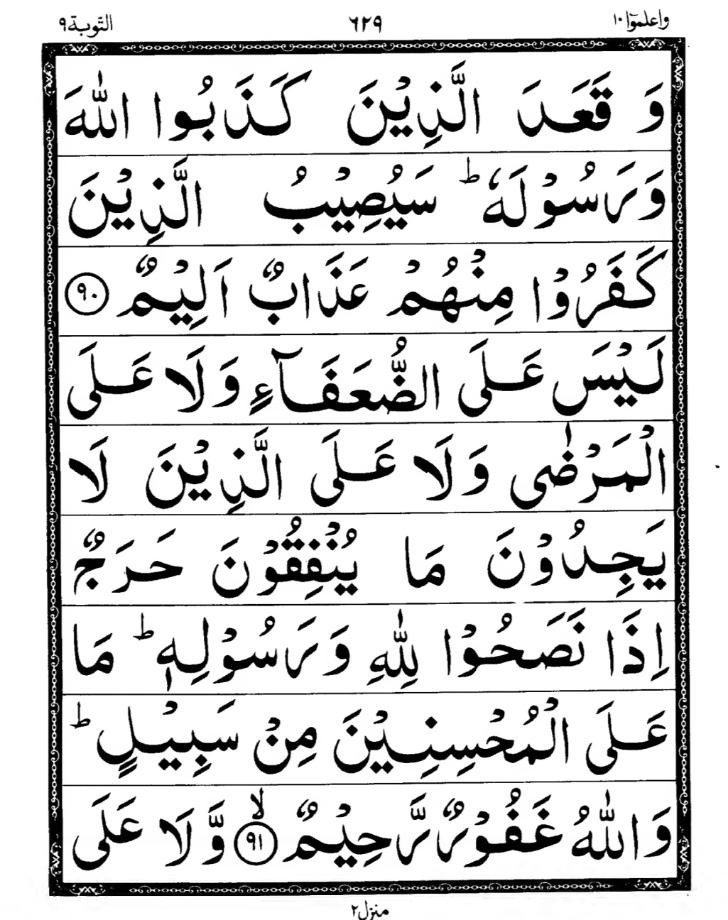 واعلموٓا ١٠ ٦٢٩ التّوبة ٩
وَ قَعَدَ الَّذِیْنَ كَذَبُوا اللّٰهَ
وَرَسُوْلَهٗ ؕ سَیُصِیْبُ الَّذِیْنَ
كَفَرُوْا مِنْهُمْ عَذَابٌ اَلِیْمٌ ﴿٩٠﴾
لَیْسَ عَلَی الضُّعَفَآءِ وَلَا عَلَی
الْمَرْضٰی وَلَا عَلَی الَّذِیْنَ لَا
یَجِدُوْنَ مَا یُنْفِقُوْنَ حَرَجٌ
اِذَا نَصَحُوْا لِلّٰهِ وَرَسُوْلِهٖ ؕ مَا
عَلَی الْمُحْسِنِیْنَ مِنْ سَبِیْلٍ ؕ
وَاللّٰهُ غَفُوْرٌ رَّحِیْمٌ ﴿٩١﴾ ۙ وَّلَا عَلَی
منزل ٢